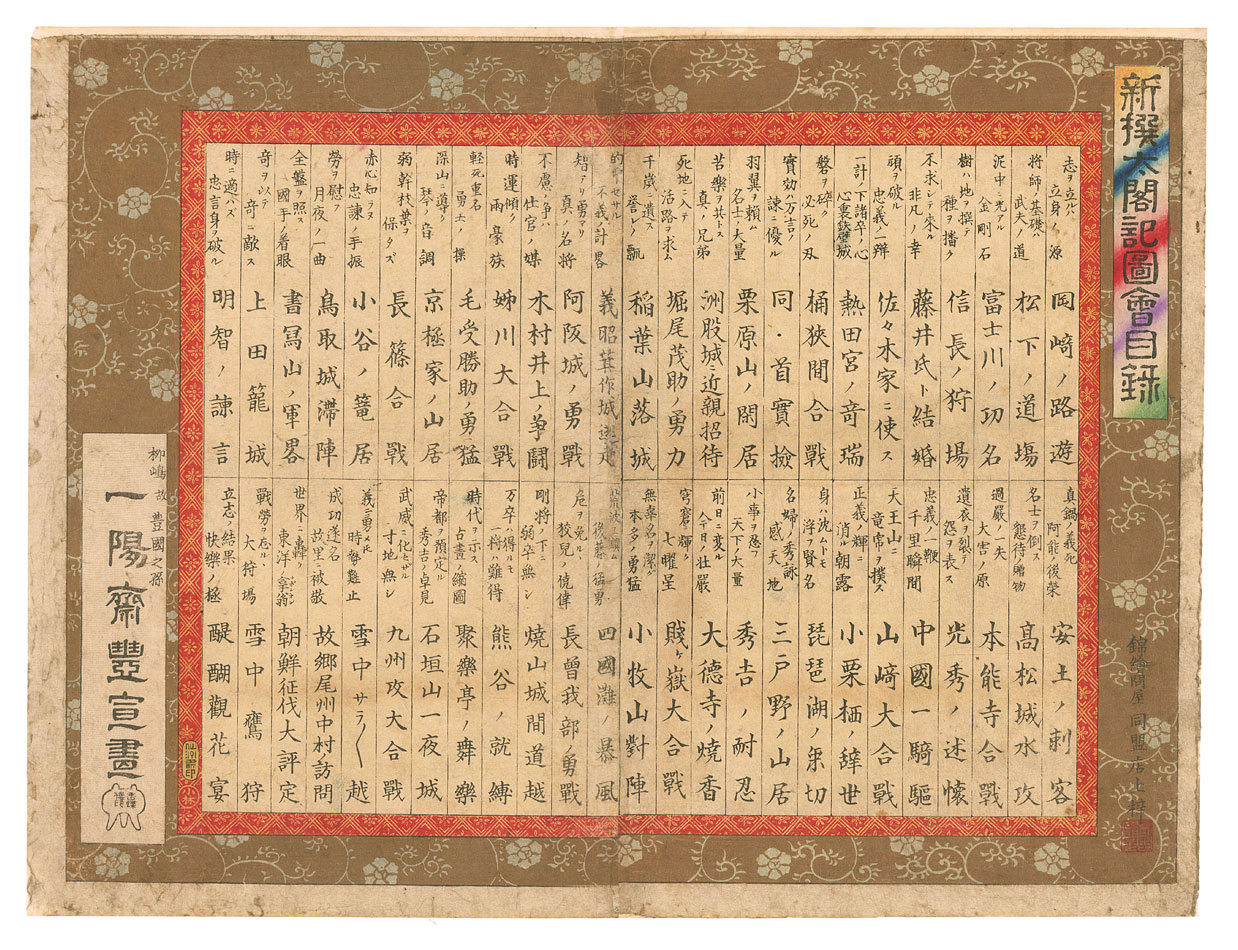 新撰太閤記圖會目録
志ヲ立ルハ
立身ノ源
岡﨑ノ路遊
将師ノ基礎ハ
武夫ノ道
松下ノ道場
泥中ニ光アル
金剛石
富士川ノ功名
樹ハ地ヲ撰テ
種ヲ播ク
信長ノ狩場
不求シテ來ル
非凡ノ幸
藤井氏ト結婚
頑ヲ破ル
忠義ノ辯
佐々木家ニ使ス
一計ノ下諸卒ノ心
心裏鉄壁城
熱田宮ノ奇瑞
磐ヲ碎ク
必死ノ刄
桶狹間合戰
實効ハ方言ノ
諫ニ優ル
同・首實撿
羽翼ヲ頼ム
名士ノ大量
栗原山ノ閑居
苦樂ヲ共トス
真ノ兄弟
洲股城ニ近親招待
死地ニ入テ
活路ヲ求ム
堀尾茂助ノ勇力
千歳ニ遺ス
譽レノ瓢
稲葉山落城
的中セサル
不義ノ計畧
義昭茸作城逃走
智アリ勇アリ
真ノ名将
阿阪城ノ勇戰
不慮ノ争ハ
仕官ノ媒
木村井上ノ争闘
時運傾ク
兩豪族
姉川大合戰
軽死重名
勇士ノ操
毛受勝助ノ勇猛
深山ニ導ク
琴ノ音調
京極家山居
弱幹枝葉ヲ
保タズ
長篠合戰
赤心知ラヌ
忠諫ノ手振
小谷ノ篭居
勞ヲ慰ウ
月夜ノ一曲
鳥取城滞陣
全盤ヲ照ス
國手ノ着眼
書冩山ノ軍畧
奇ヲ以テ
奇ニ敵ス
上田籠城
時ニ適ハズ
忠言身ヲ破ル
明智ノ諫言
真鍋ノ義死
阿能ノ後榮
安土ノ刺客
名士ヲ倒ス
懇待ノ贈物
髙松城水攻
過嚴ノ一失
大害ノ原
本能寺合戰
遺衣ヲ裂テ
怨ヲ表ス
光秀ノ述懐
忠義ノ一鞭
千里瞬間
中國一騎驅
天王山ニ
竜常ヲ撲ス
山﨑大合戰
正義ノ輝ニ
消ル朝露
小栗栖ノ辞世
身ハ沈ムトモ
浮フ賢名
琵琶湖ノ乗切
名婦ノ秀詠
感天地
三戸野ノ山居
小事ヲ忍フ
天下ノ大量
秀吉ノ耐忍
前日ニ変ル
今日ノ壮嚴
大德寺ノ焼香
穹窘ニ輝ク
七曜星
賤ヶ嶽大合戰
無辜名ヲ潔ク
本多ノ勇猛
小牧山對陣
後藤ノ猛勇
四國灘ノ暴風
危ヲ免ルヽ
狡兒ノ僥倖
長曽我部ノ勇戰
剛将ノ下ニ
弱卒無シ
燒山城間道越
万卒ハ得ルモ
一将ハ難得
熊谷ノ就縛
時代ヲ示ス
古畫ノ縮圖
聚樂亭ノ舞樂
帝都ヲ預定ル
秀吉ノ卓見
石垣山一夜城
武威ニ化セザル
寸地無シ
九州攻大合戰
義ニ勇メ𪜈
時勢難止
雪中サラ〱越
成功遂名
故里ニ被敬
故郷尾州中村ノ訪問
世界ニ轟ク
東洋ノ拿翁
朝鮮征伐大評定
戰勞ヲ忘ル
大狩場
雪中鷹狩
立志ノ結果
快樂ノ極
醍醐觀花宴
錦繪問屋同盟店上梓
小林
柳嶋
故豊國之孫
一陽齋豐宣畫